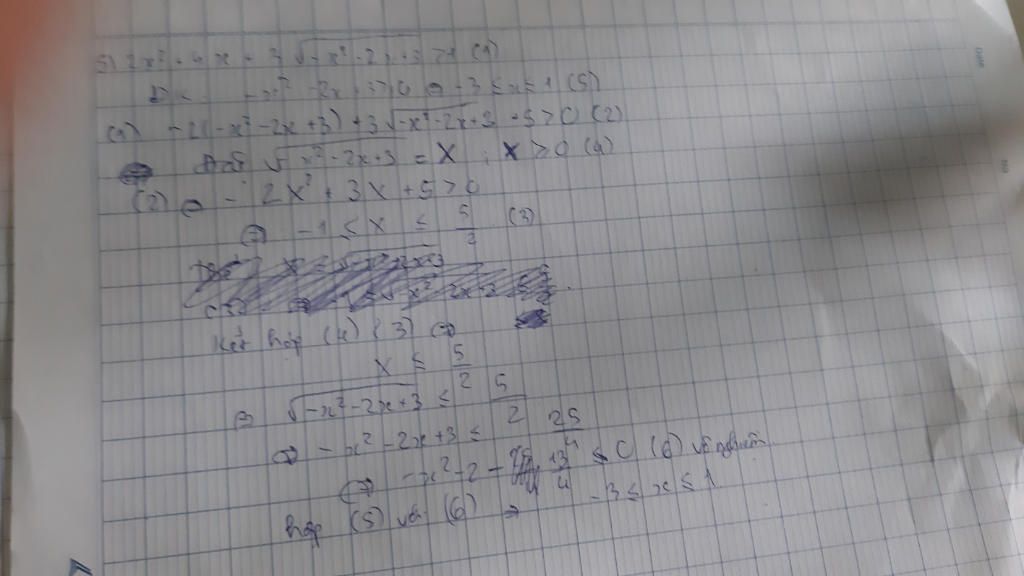 5) 2x² + 4x + 3√(-x² - 2x + 3) > 1 (1)
-x² - 2x + 3 ≥ 0 ⇔ -3 ≤ x ≤ 1 (5)
(1) -2(-x² - 2x + 3) + 3√(-x² - 2x + 3) + 5 > 0 (2)
Đặt √(-x² - 2x + 3) = X ; X > 0 (4)
(2) ⇔ - 2X² + 3X + 5 > 0
⇔ -1 ≤ X ≤ 5/2 (3)
Kết hợp (4) (3) ⇔
X ≤ 5/2
⇔ √(-x² - 2x + 3) ≤ 5/2
⇔ -x² - 2x + 3 ≤ 25/4
⇔ -x² - 2 - 13/4 ≤ 0 (6) vô nghiệm
hợp (5) với (6) ⇒ -3 ≤ x ≤ 1